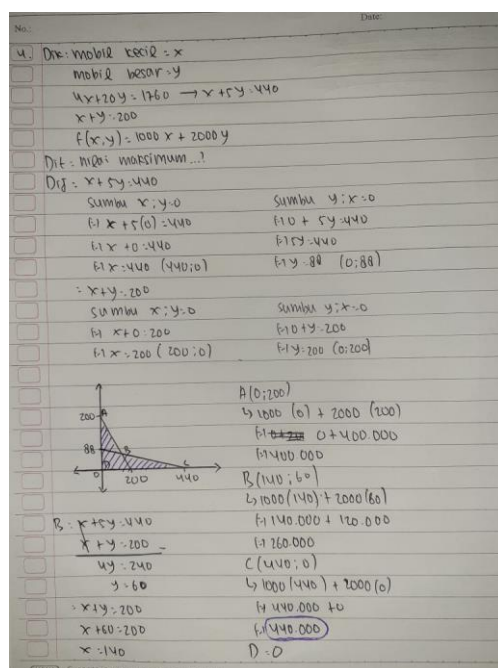 No.:
Date:
4. Dik: mobil kecil = x
mobil besar = y
4x+20y = 1760 → x+5y=440
x+y = 200
f(x,y) = 1000 x + 2000 y
Dit = nilai maksimum...!
Dij = x+5y=440
Sumbu x; y=0
Sumbu y; x=0
x+5(0) = 440
0 + 5y = 440
x+0 = 440
5y = 440
x = 440 (440;0)
y = 88 (0;88)
= x+y = 200
Sumbu x; y=0
Sumbu y; x=0
x+0 = 200
0+y = 200
x = 200 (200;0)
y = 200 (0;200)
200
A
88
B
D
C
0
200
440
A(0;200)
↳ 1000 (0) + 2000 (200)
0+400.000
400.000
B(140;60)
↳ 1000(140) + 2000(60)
140.000 + 120.000
260.000
C(440;0)
↳ 1000(440) + 2000(0)
440.000 + 0
440.000
D = 0
B = x+5y=440
x+y=200 -
4y = 240
y = 60
= x+y = 200
x+60=200
x = 140